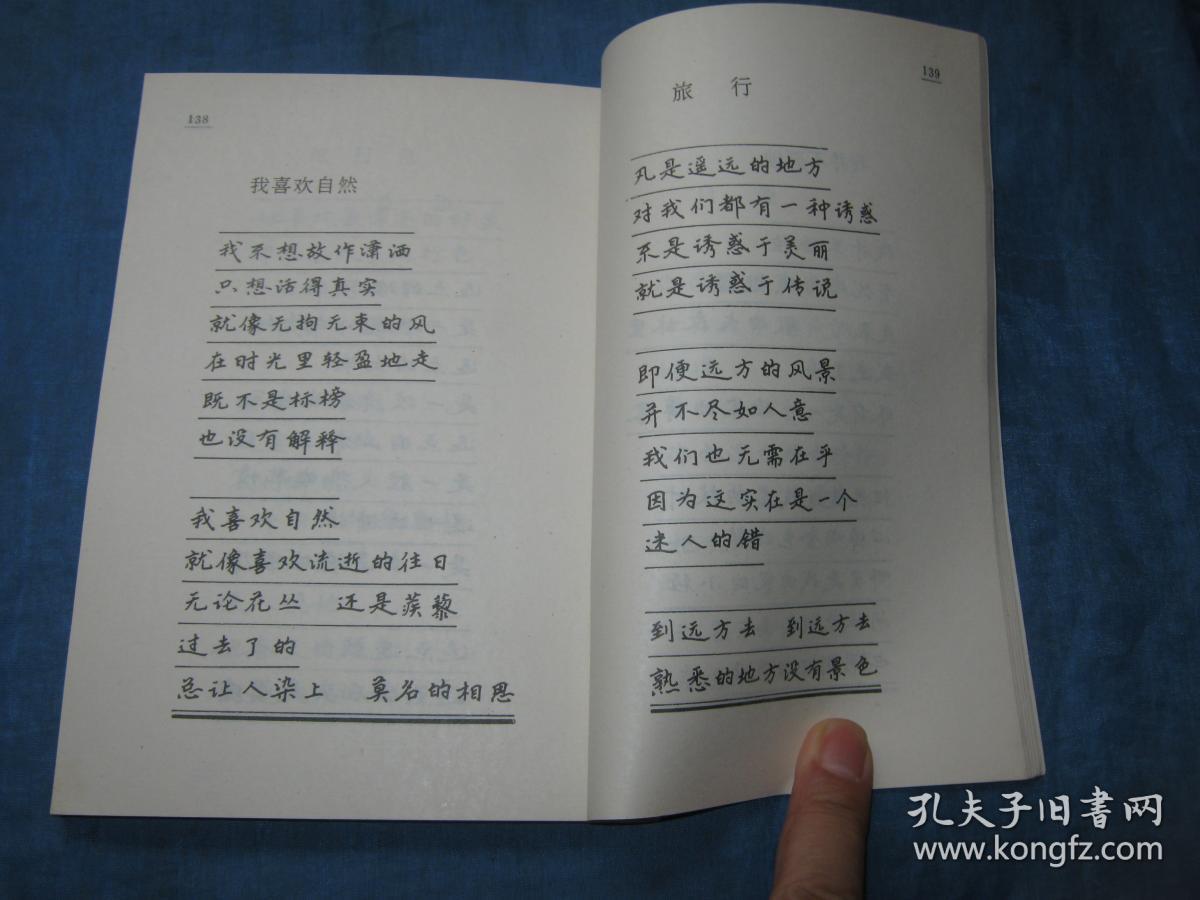 138
我喜欢自然
我不想故作潇洒
只想活得真实
就像无拘无束的风
在时光里轻盈地走
既不是标榜
也没有解释
我喜欢自然
就像喜欢流逝的往日
无论花丛　还是蒺藜
过去了的
总让人染上　莫名的相思
139
旅　行
凡是遥远的地方
对我们都有一种诱惑
不是诱惑于美丽
就是诱惑于传说
即便远方的风景
并不尽如人意
我们也无需在乎
因为这实在是一个
迷人的错
到远方去　到远方去
熟悉的地方没有景色
孔夫子旧書网
www.kongfz.com